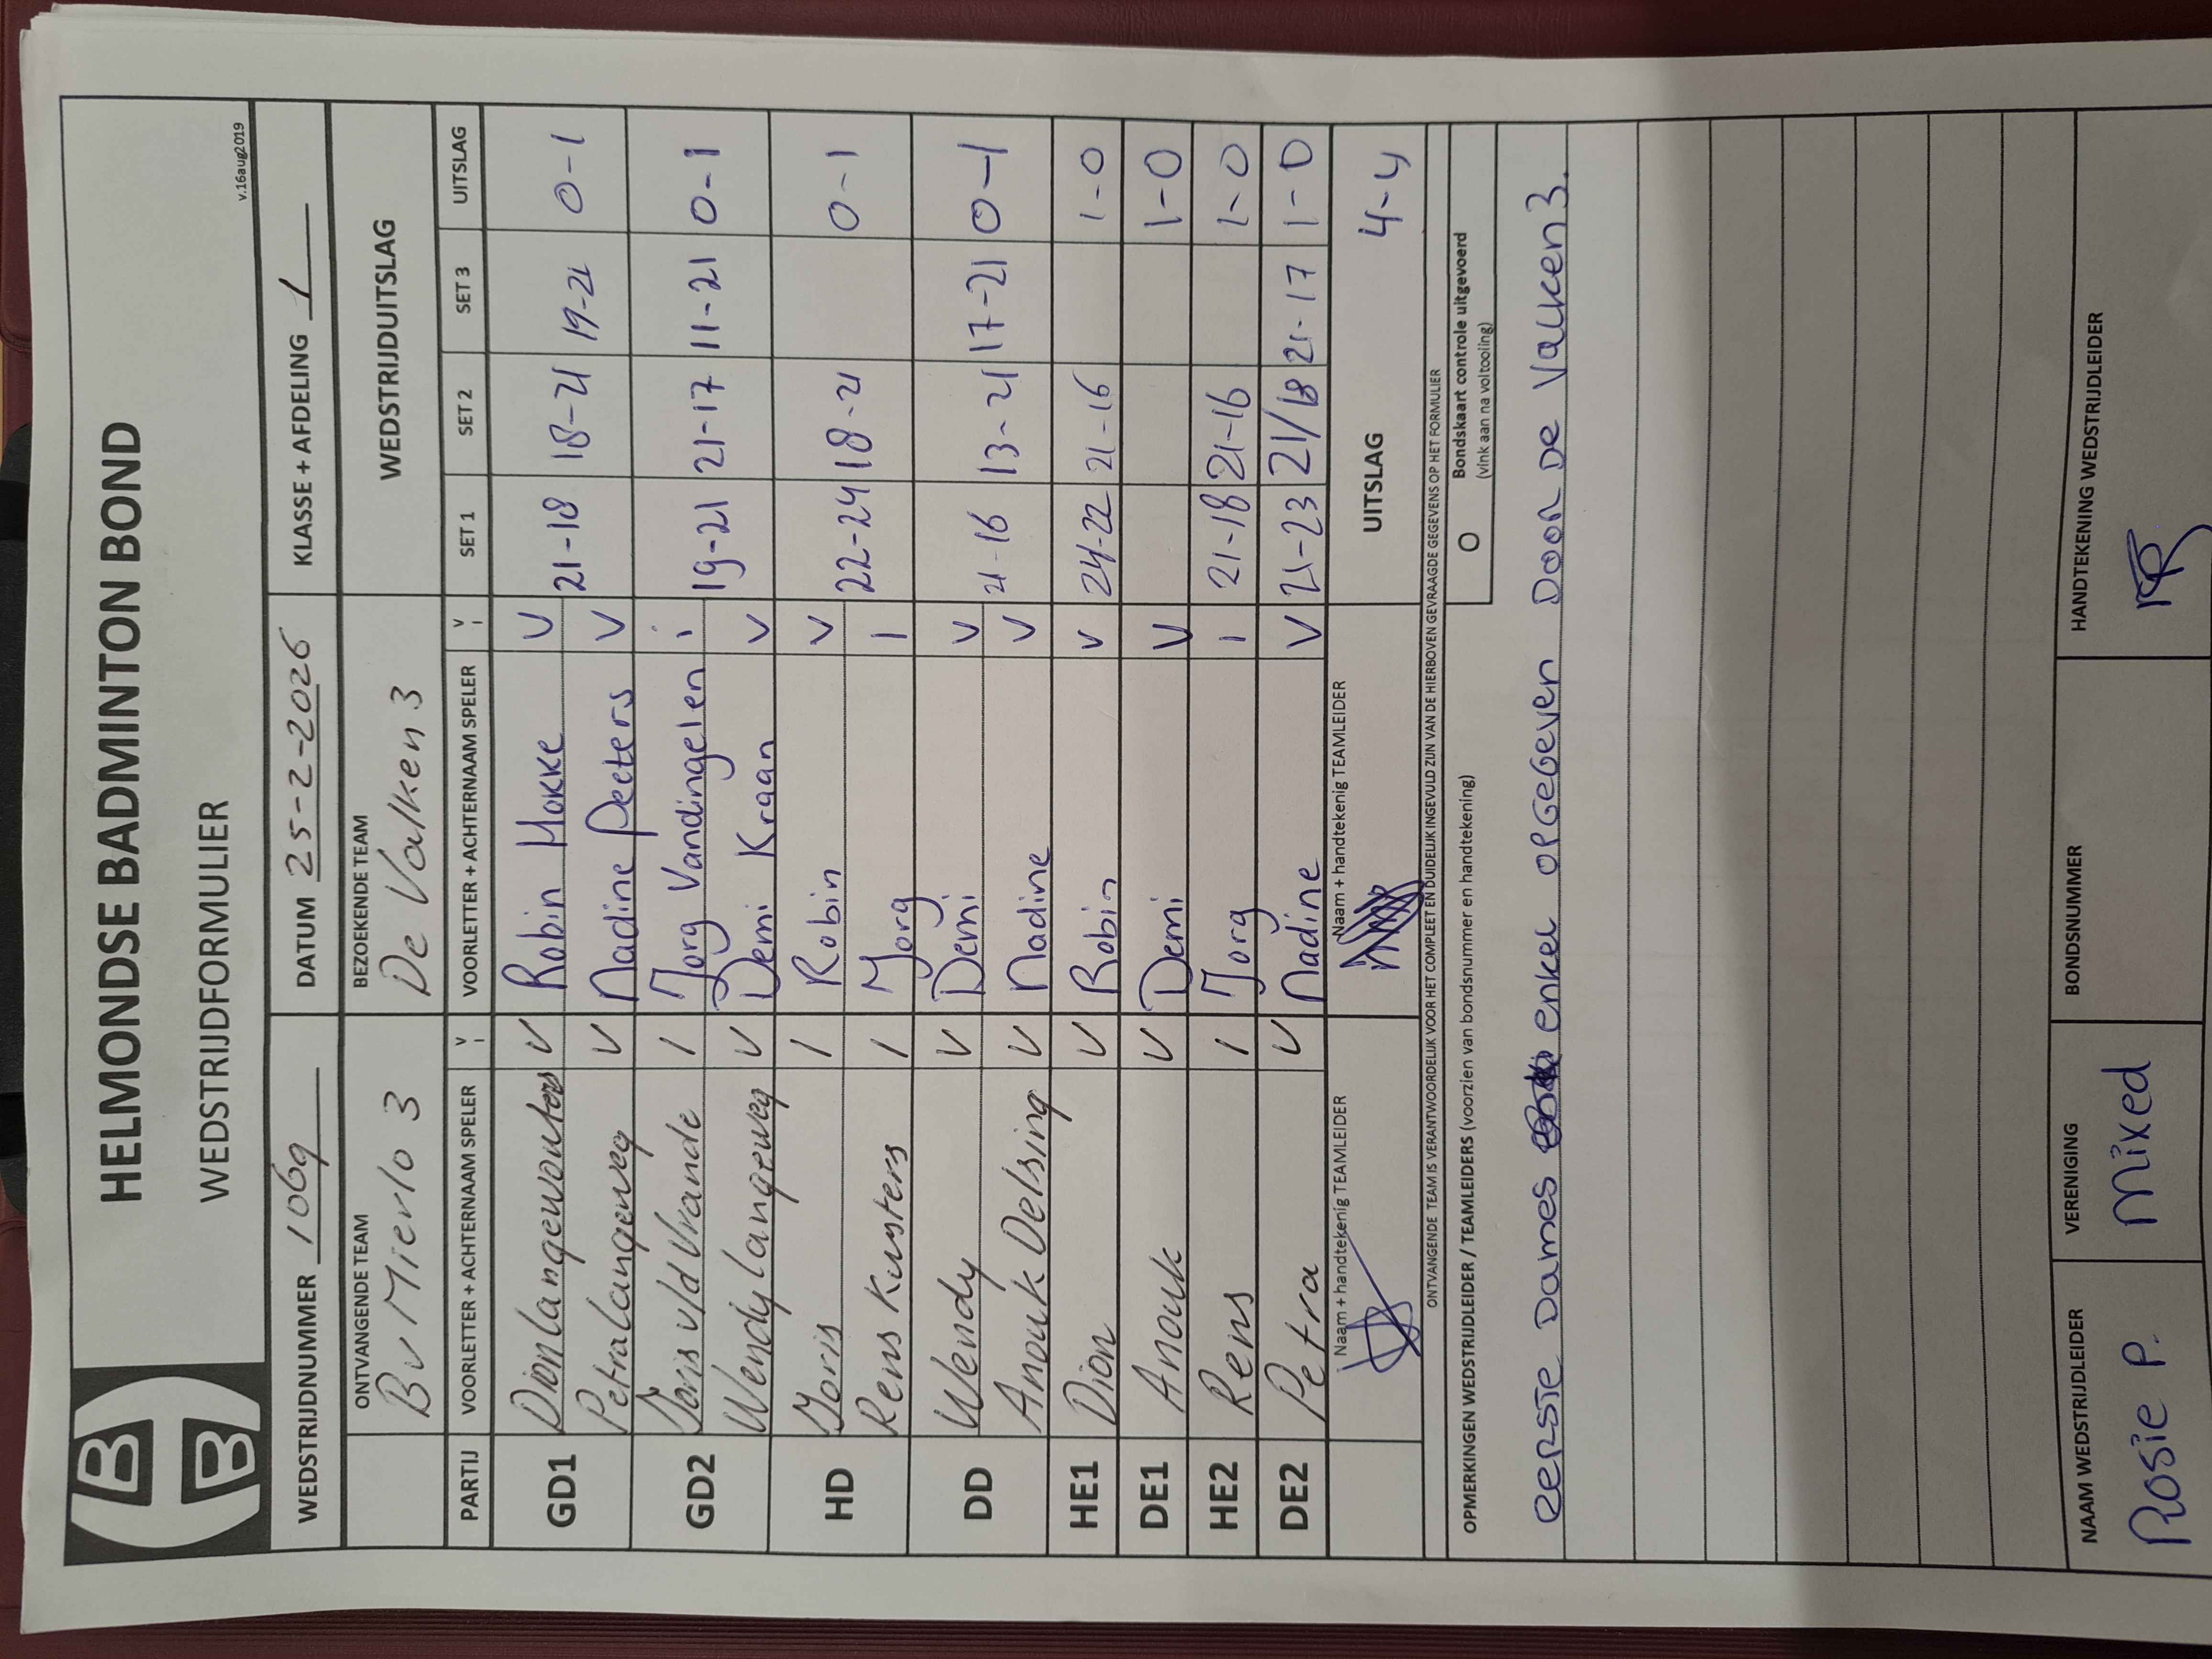 HELMONDSE BADMINTON BOND
WEDSTRIJDFORMULIER
v.16aug2019
HBB
WEDSTRIJDNUMMER 1069 DATUM 25-2-2026 KLASSE + AFDELING 1
ONTVANGENDE TEAM BEZOEKENDE TEAM WEDSTRIJDUITSLAG
BV Mierlo 3 De Valken 3
PARTIJ VOORLETTER + ACHTERNAAM SPELER V I VOORLETTER + ACHTERNAAM SPELER V I SET 1 SET 2 SET 3 UITSLAG
GD1 Dion Langewouters V Robin Mokke V 21-18 18-21 19-21 0-1
Petra Langeweg V Nadine Peeters V
GD2 Joris v/d Vrande I Jorg Vandingelen i 19-21 21-17 11-21 0-1
Wendy Langeweg V Demi Kraan V
HD Joris I Robin V 22-24 18-21 0-1
Rens Kusters I Jorg I
DD Wendy V Demi V 21-16 13-21 17-21 0-1
Anouk Delsing V Nadine V
HE1 Dion V Robin V 24-22 21-16 1-0
DE1 Anouk V Demi V 1-0
HE2 Rens I Jorg I 21-18 21-16 1-0
DE2 Petra V Nadine V 21-23 21/18 21-17 1-0
Naam + handtekenig TEAMLEIDER Naam + handtekenig TEAMLEIDER UITSLAG 4-4
ONTVANGENDE TEAM IS VERANTWOORDELIJK VOOR HET COMPLEET EN DUIDELIJK INGEVULD ZIJN VAN DE HIERBOVEN GEVRAAGDE GEGEVENS OP HET FORMULIER
OPMERKINGEN WEDSTRIJDLEIDER / TEAMLEIDERS (voorzien van bondsnummer en handtekening) O Bondskaart controle uitgevoerd
(vink aan na voltooiing)
eerste Dames enkel opgegeven Door De Valken 3.
NAAM WEDSTRIJDLEIDER VERENIGING BONDSNUMMER HANDTEKENING WEDSTRIJDLEIDER
Rosie P. Mixed